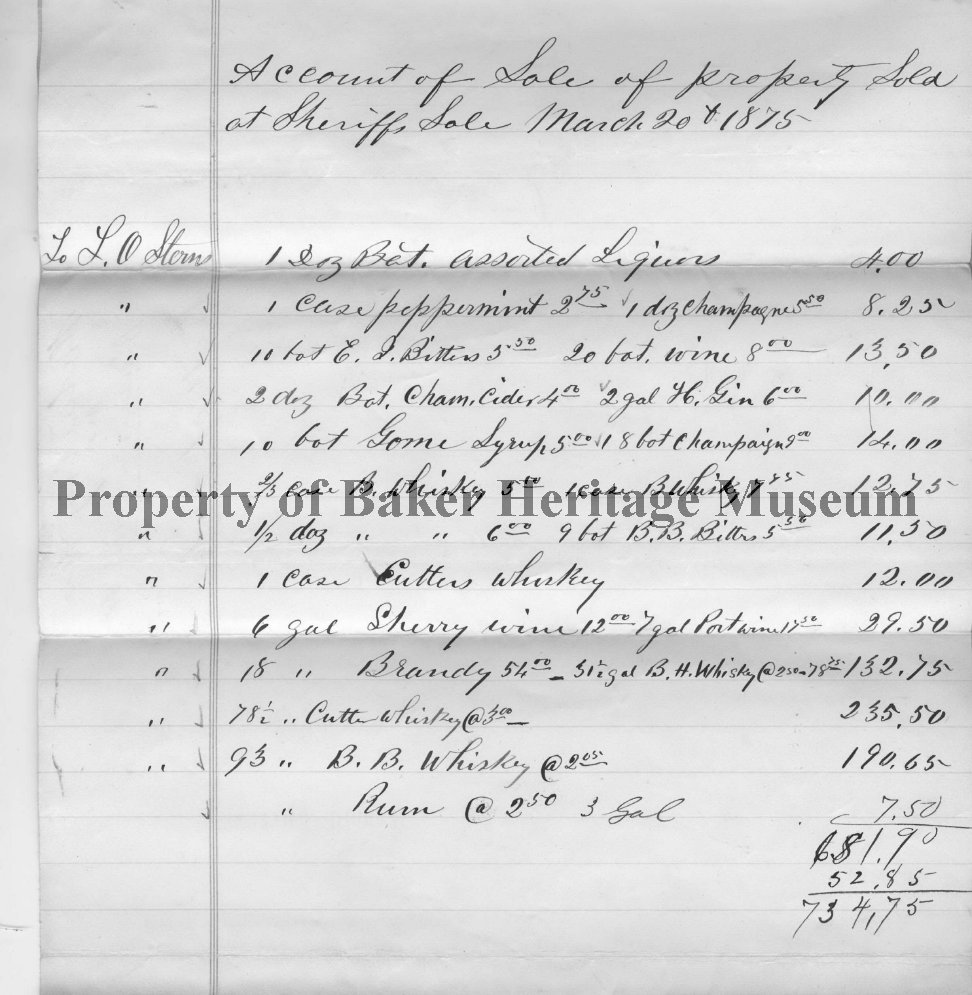 Account of Sale of property Sold
at Sheriffs Sale March 20t 1875
To L. O Sterns 1 Doz Bot. assorted Liquors 4.00
" 1 case peppermint 2 75 1 doz champagne 5 50 8.25
" 10 bot E. I. Bitters 5 50 20 bot. wine 8 00 13,50
" 2 doz Bot. Cham, Cider 4 00 2 gal H. Gin 6 00 10.00
" 10 bot Gome Syrup 5 00 18 bot Champaign 9 00 14.00
" 2/3 case B. Whisky 5 00 1 case B Whisky 7 75 12.75
Property of Baker Heritage Museum
" 1/2 doz " " 6 00 9 bot B.B. Bitters 5 50 11,50
" 1 case Cutters whiskey 12.00
" 6 gal Sherry wine 12 00 7 gal Port wine 17 50 29.50
" 18 " Brandy 54 00 - 31 1/2 gal B. H. Whisky @ 2 50 - 78 75 132.75
" 78 1/2 " Cutter whiskey @ 3 00 - 235,50
" 93 " B. B. Whiskey @ 2 05 190.65
" Rum @ 2 50 3 Gal 7.50
681.90
52.85
734,75